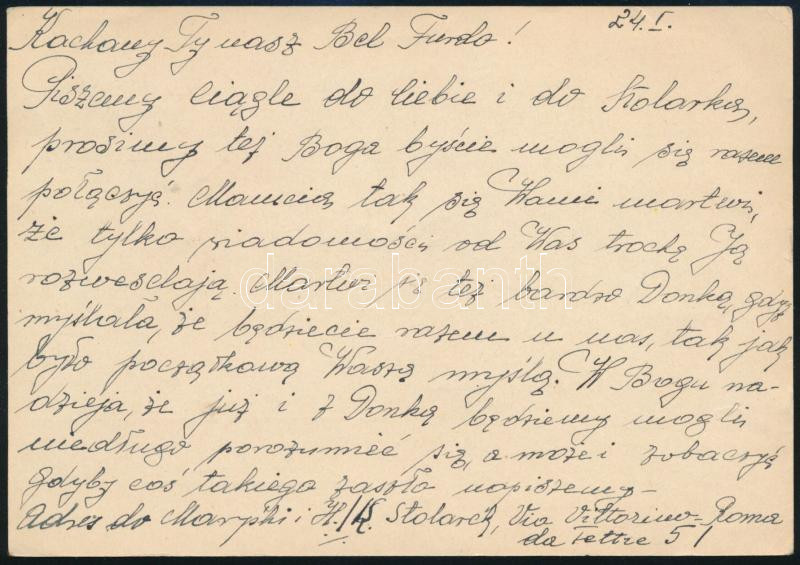 24.I.
Kochany Ty nasz Bel Furdo!
Piszemy ciągle do Ciebie i do Stolarką,
prosimy też Boga byście mogli się razem
połączyć. Mamcia tak się Wami martwi,
że tylko wiadomości od Was trochę Ją
rozweselają. Martwi się też bardzo Donką, gdyż
myślała, że będziecie razem u nas, tak jak
było początkową Waszą myślą. W Bogu na-
dzieja, że już i z Donką będziemy mogli
niedługo porozumieć się, a może i zobaczyć
gdyby coś takiego zaszło napiszemy-
Adres do Maryśki i H. Stolarck, Via Vittorino Roma
da Feltre 51
darabanth